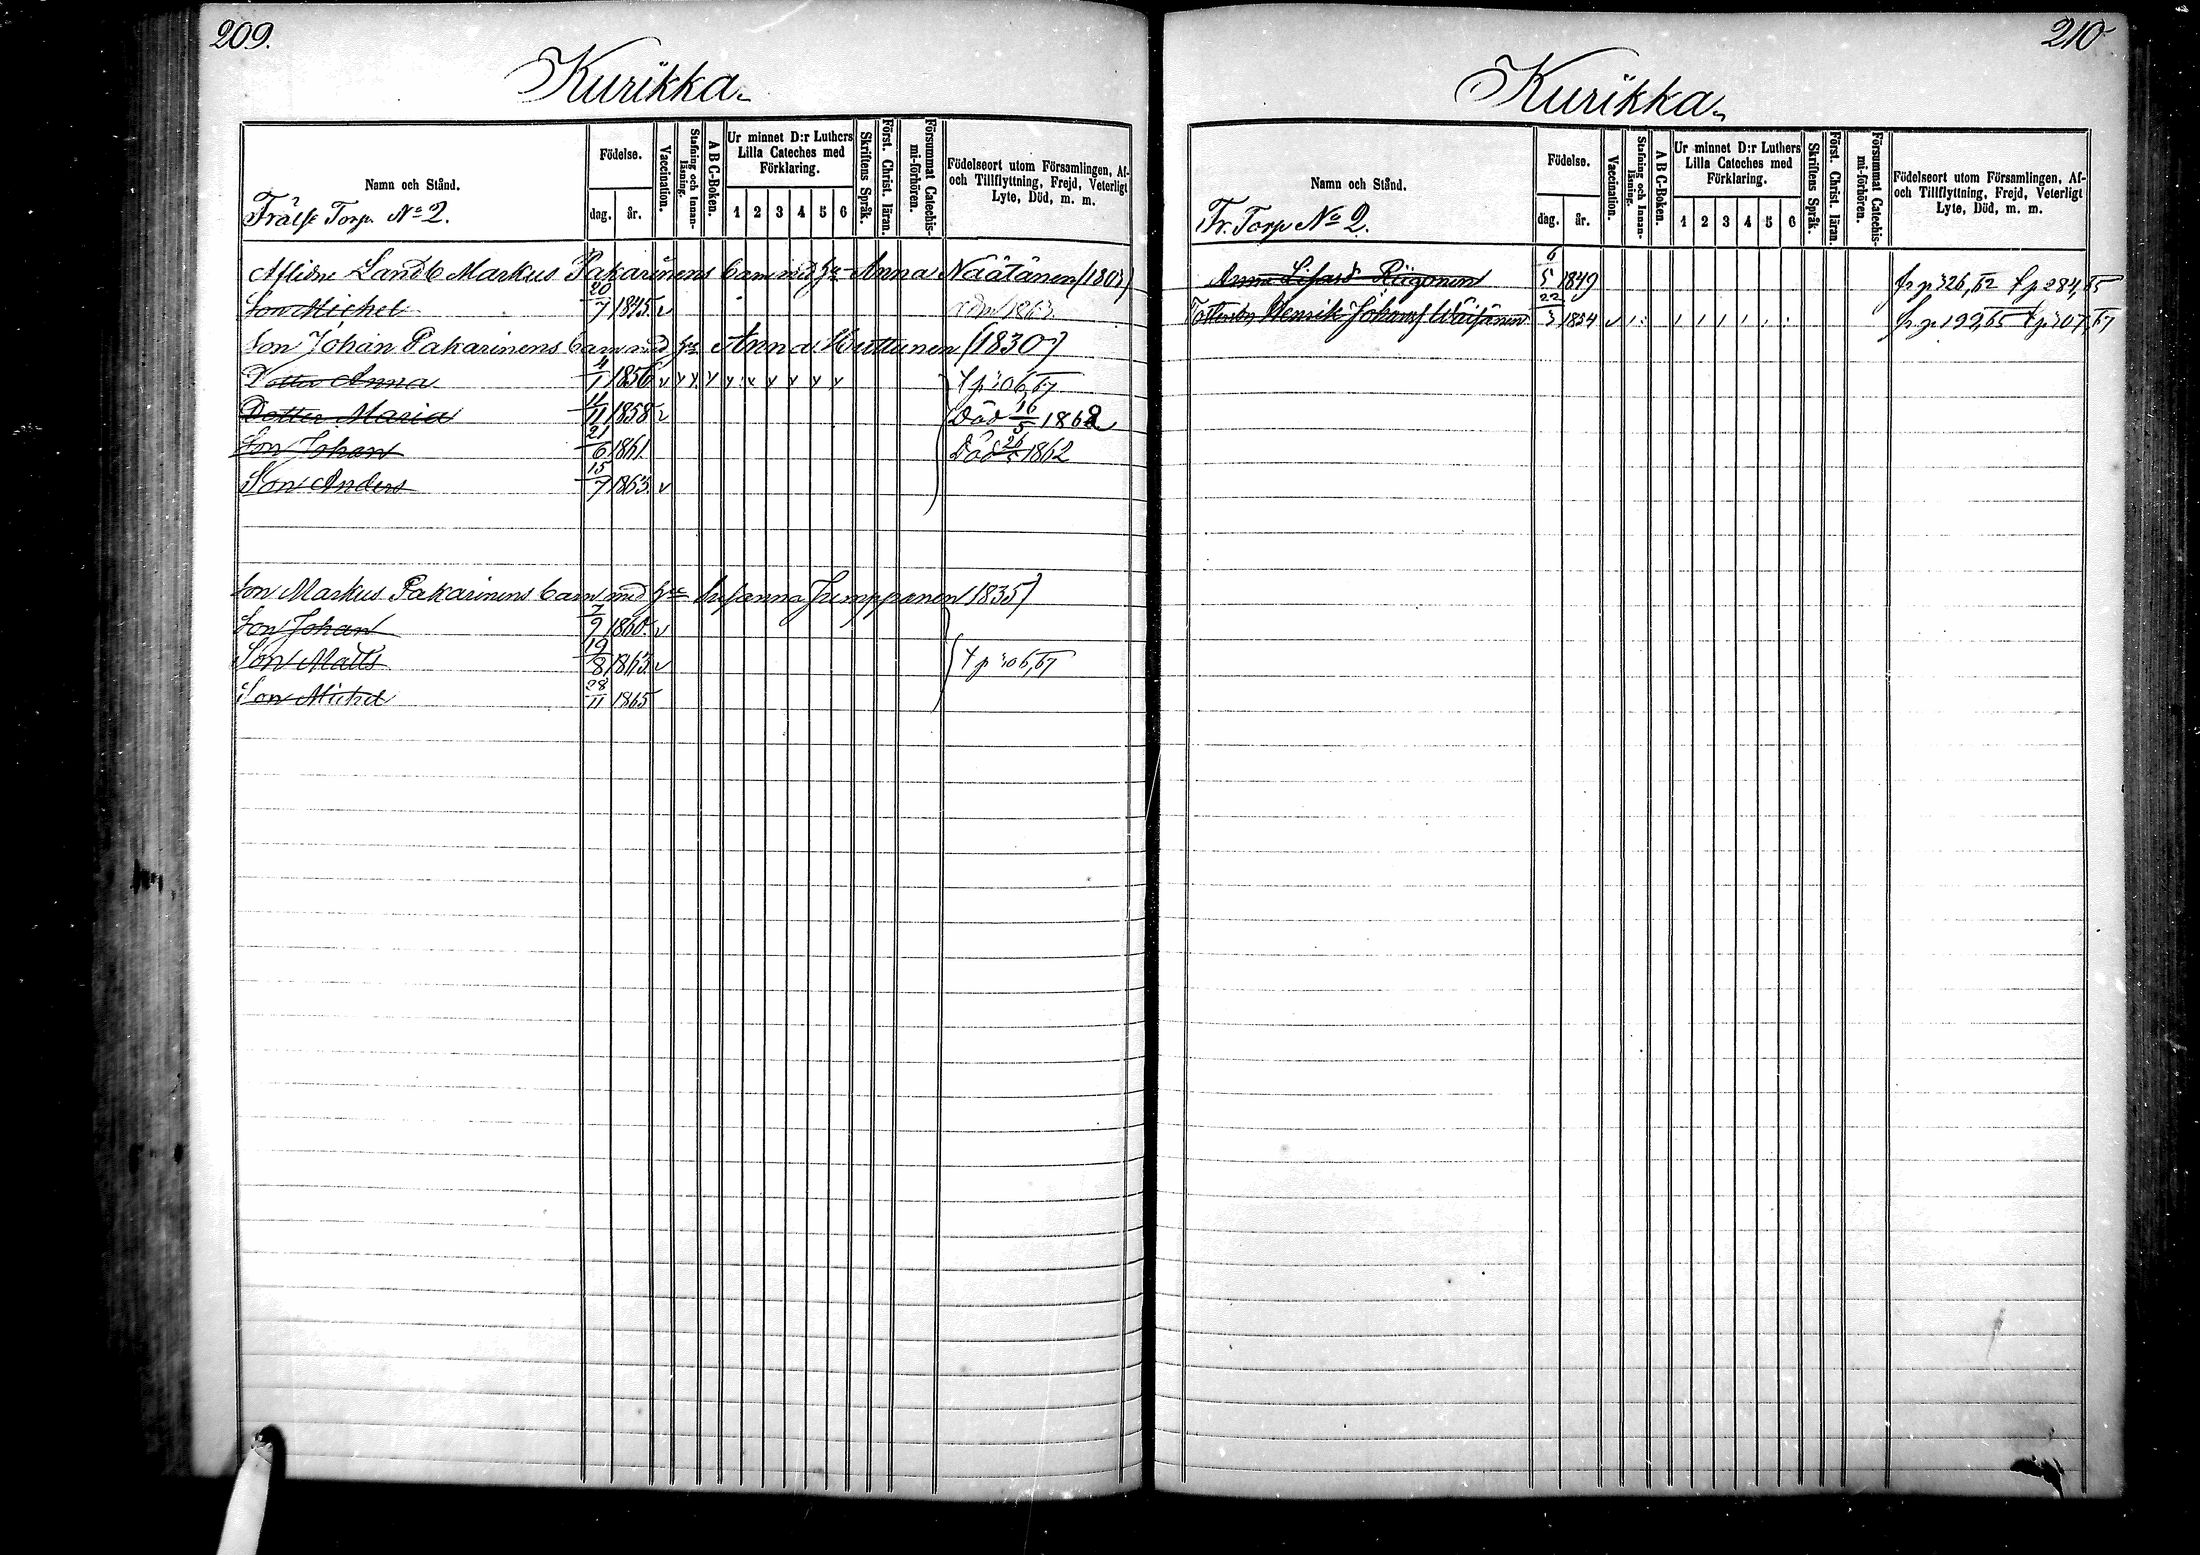 209.
Kurikka
Namn och Stånd.
Frälse Torp. No 2.
Födelse.
dag.
år.
Vaccination.
Stafning och Innan-läsning.
A B C-Boken.
Ur minnet D:r Luthers Lilla Cateches med Förklaring.
1 2 3 4 5 6
Skriftens Språk.
Först. Christ. läran.
Försummat Catechis-mi-förhören.
Födelseort utom Församlingen, Af- och Tillflyttning, Frejd, Veterligt Lyte, Död, m. m.
Aflidne Landb Markus Pakarinens barn med Anna Näätänen (1803)
Son Michel 20/7 1845 v 1863
Son Johan Pakarinens barn med Anna Huttunen (1830)
Dotter Anna 4/1 1856 v v v v v v v v v v p 306, 67
Dotter Maria 4/11 1858 v Död 16/5 1868
Son Johan 21/6 1861 Död 26 1862
Son Anders 15/7 1863 v
Son Markus Pakarinens barn med Susanna Jumppanen (1835)
Son Johan 7/9 1860 v
Son Matts 19/8 1863 v p 306, 67
Son Michel 28/11 1865
210
Kurikka
Namn och Stånd.
Fr. Torp No 2.
Födelse.
dag.
år.
Vaccination.
Stafning och Innan-läsning.
A B C-Boken.
Ur minnet D:r Luthers Lilla Cateches med Förklaring.
1 2 3 4 5 6
Skriftens Språk.
Först. Christ. läran.
Försummat Catechis-mi-förhören.
Födelseort utom Församlingen, Af- och Tillflyttning, Frejd, Veterligt Lyte, Död, m. m.
Anna Lisa Riigonen 6/5 1849 fr p 326, 62 p 284, 65
Henrik Johans Wäisänen 22/3 1854 v fr p 199, 65 p 307, 67